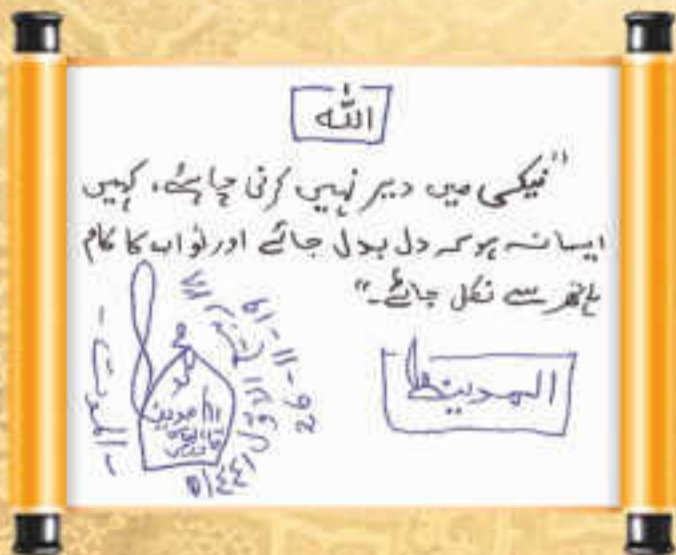 اللہ
"نیکی میں دیر نہیں کرنی چاہئے، کہیں
ایسا نہ ہو کہ دل بدل جائے اور ثواب کا کام
ہاتھ سے نکل جائے۔"
المدینہ
محمد
الاول ١٤٤١ھ
26-11-19